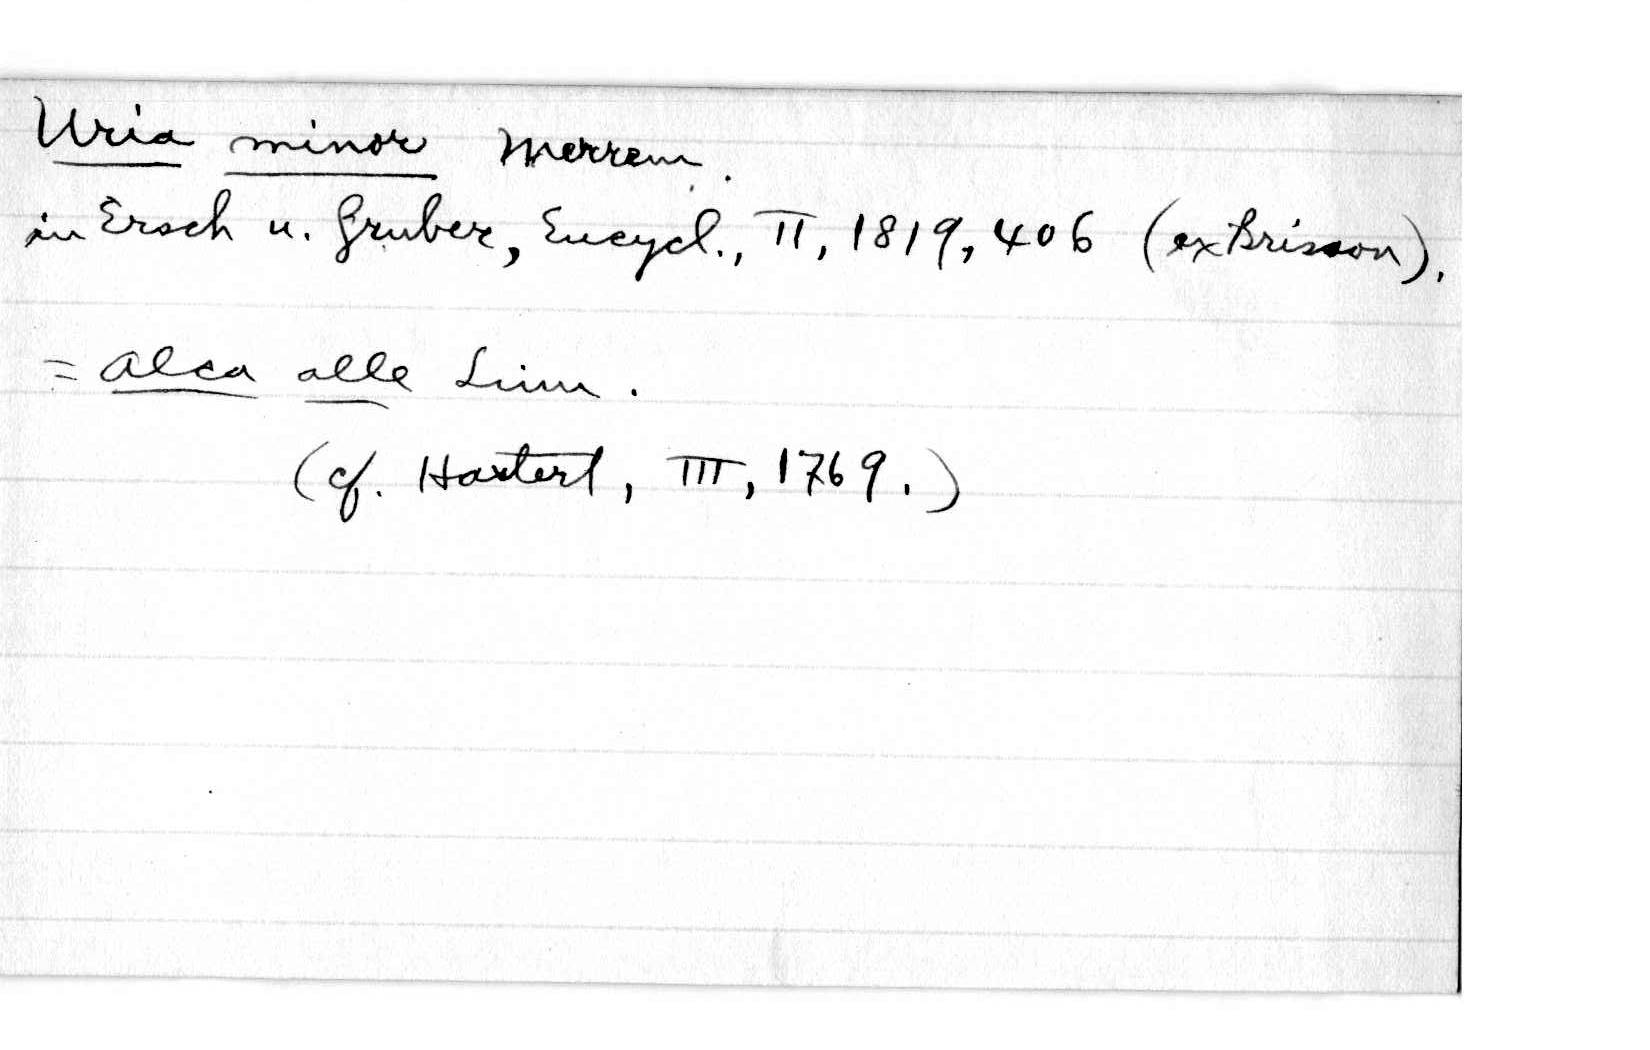 Uria minor Merrem.
in Ersch u. Gruber, Encycl., II, 1819, 406 (ex Brisson).
= Alca alle Linn.
(cf. Hartert, III, 1769.)